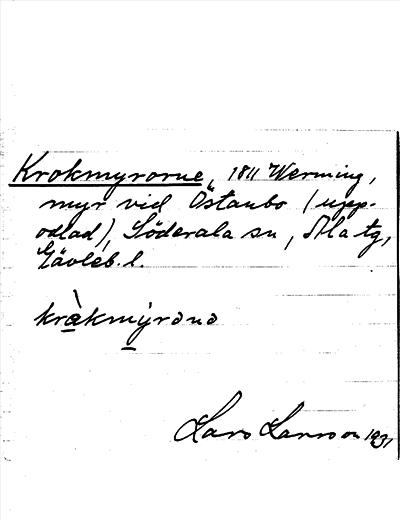 Krokmyrorne, 1811 Werming,
myr vid Östanbo (upp-
odlad), Söderala sn, Ala tg,
Gävleb. l.
kràkmýrəna
Lars Larsson 1931